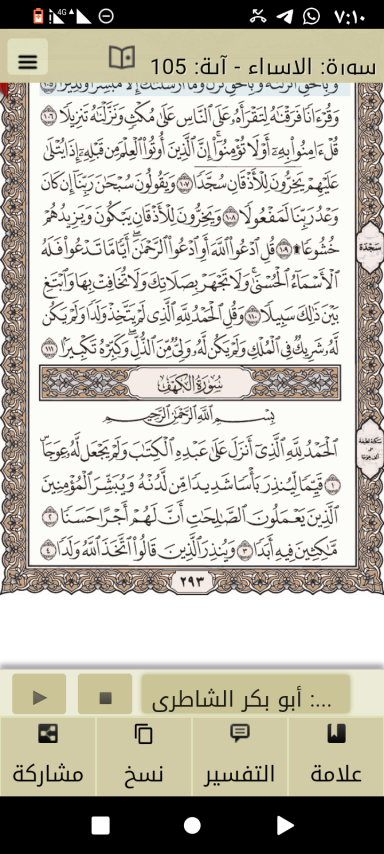 ٧:١٠
4G
سورة: الإسراء - آية: 105
وَبِالْحَقِّ أَنزَلْنَاهُ وَبِالْحَقِّ نَزَلَ وَمَا أَرْسَلْنَاكَ إِلَّا مُبَشِّرًا وَنَذِيرًا ١٠٥
وَقُرْءَانًا فَرَقْنَاهُ لِتَقْرَأَهُ عَلَى النَّاسِ عَلَىٰ مُكْثٍ وَنَزَّلْنَاهُ تَنزِيلًا ١٠٦
قُلْ ءَامِنُوا بِهِ أَوْ لَا تُؤْمِنُوا إِنَّ الَّذِينَ أُوتُوا الْعِلْمَ مِن قَبْلِهِ إِذَا يُتْلَىٰ
عَلَيْهِمْ يَخِرُّونَ لِلْأَذْقَانِ سُجَّدًا ١٠٧ وَيَقُولُونَ سُبْحَٰنَ رَبِّنَا إِن كَانَ
وَعْدُ رَبِّنَا لَمَفْعُولًا ١٠٨ وَيَخِرُّونَ لِلْأَذْقَانِ يَبْكُونَ وَيَزِيدُهُمْ
خُشُوعًا ۩ ١٠٩ قُلِ ادْعُوا اللَّهَ أَوِ ادْعُوا الرَّحْمَٰنَ أَيًّا مَّا تَدْعُوا فَلَهُ
سَجْدَة
الْأَسْمَاءُ الْحُسْنَىٰ وَلَا تَجْهَرْ بِصَلَاتِكَ وَلَا تُخَافِتْ بِهَا وَابْتَغِ
بَيْنَ ذَٰلِكَ سَبِيلًا ١١٠ وَقُلِ الْحَمْدُ لِلَّهِ الَّذِي لَمْ يَتَّخِذْ وَلَدًا وَلَمْ يَكُن
لَّهُ شَرِيكٌ فِي الْمُلْكِ وَلَمْ يَكُن لَّهُ وَلِيٌّ مِّنَ الذُّلِّ وَكَبِّرْهُ تَكْبِيرًا ١١١
سُورَةُ الْكَهْفِ
بِسْمِ اللَّهِ الرَّحْمَٰنِ الرَّحِيمِ
الْحَمْدُ لِلَّهِ الَّذِي أَنزَلَ عَلَىٰ عَبْدِهِ الْكِتَٰبَ وَلَمْ يَجْعَل لَّهُ عِوَجًا ۜ
١ قَيِّمًا لِّيُنذِرَ بَأْسًا شَدِيدًا مِّن لَّدُنْهُ وَيُبَشِّرَ الْمُؤْمِنِينَ
الَّذِينَ يَعْمَلُونَ الصَّٰلِحَٰتِ أَنَّ لَهُمْ أَجْرًا حَسَنًا ٢
مَّٰكِثِينَ فِيهِ أَبَدًا ٣ وَيُنذِرَ الَّذِينَ قَالُوا اتَّخَذَ اللَّهُ وَلَدًا ٤
٢٩٣
أبو بكر الشاطرى :...
علامة
التفسير
نسخ
مشاركة